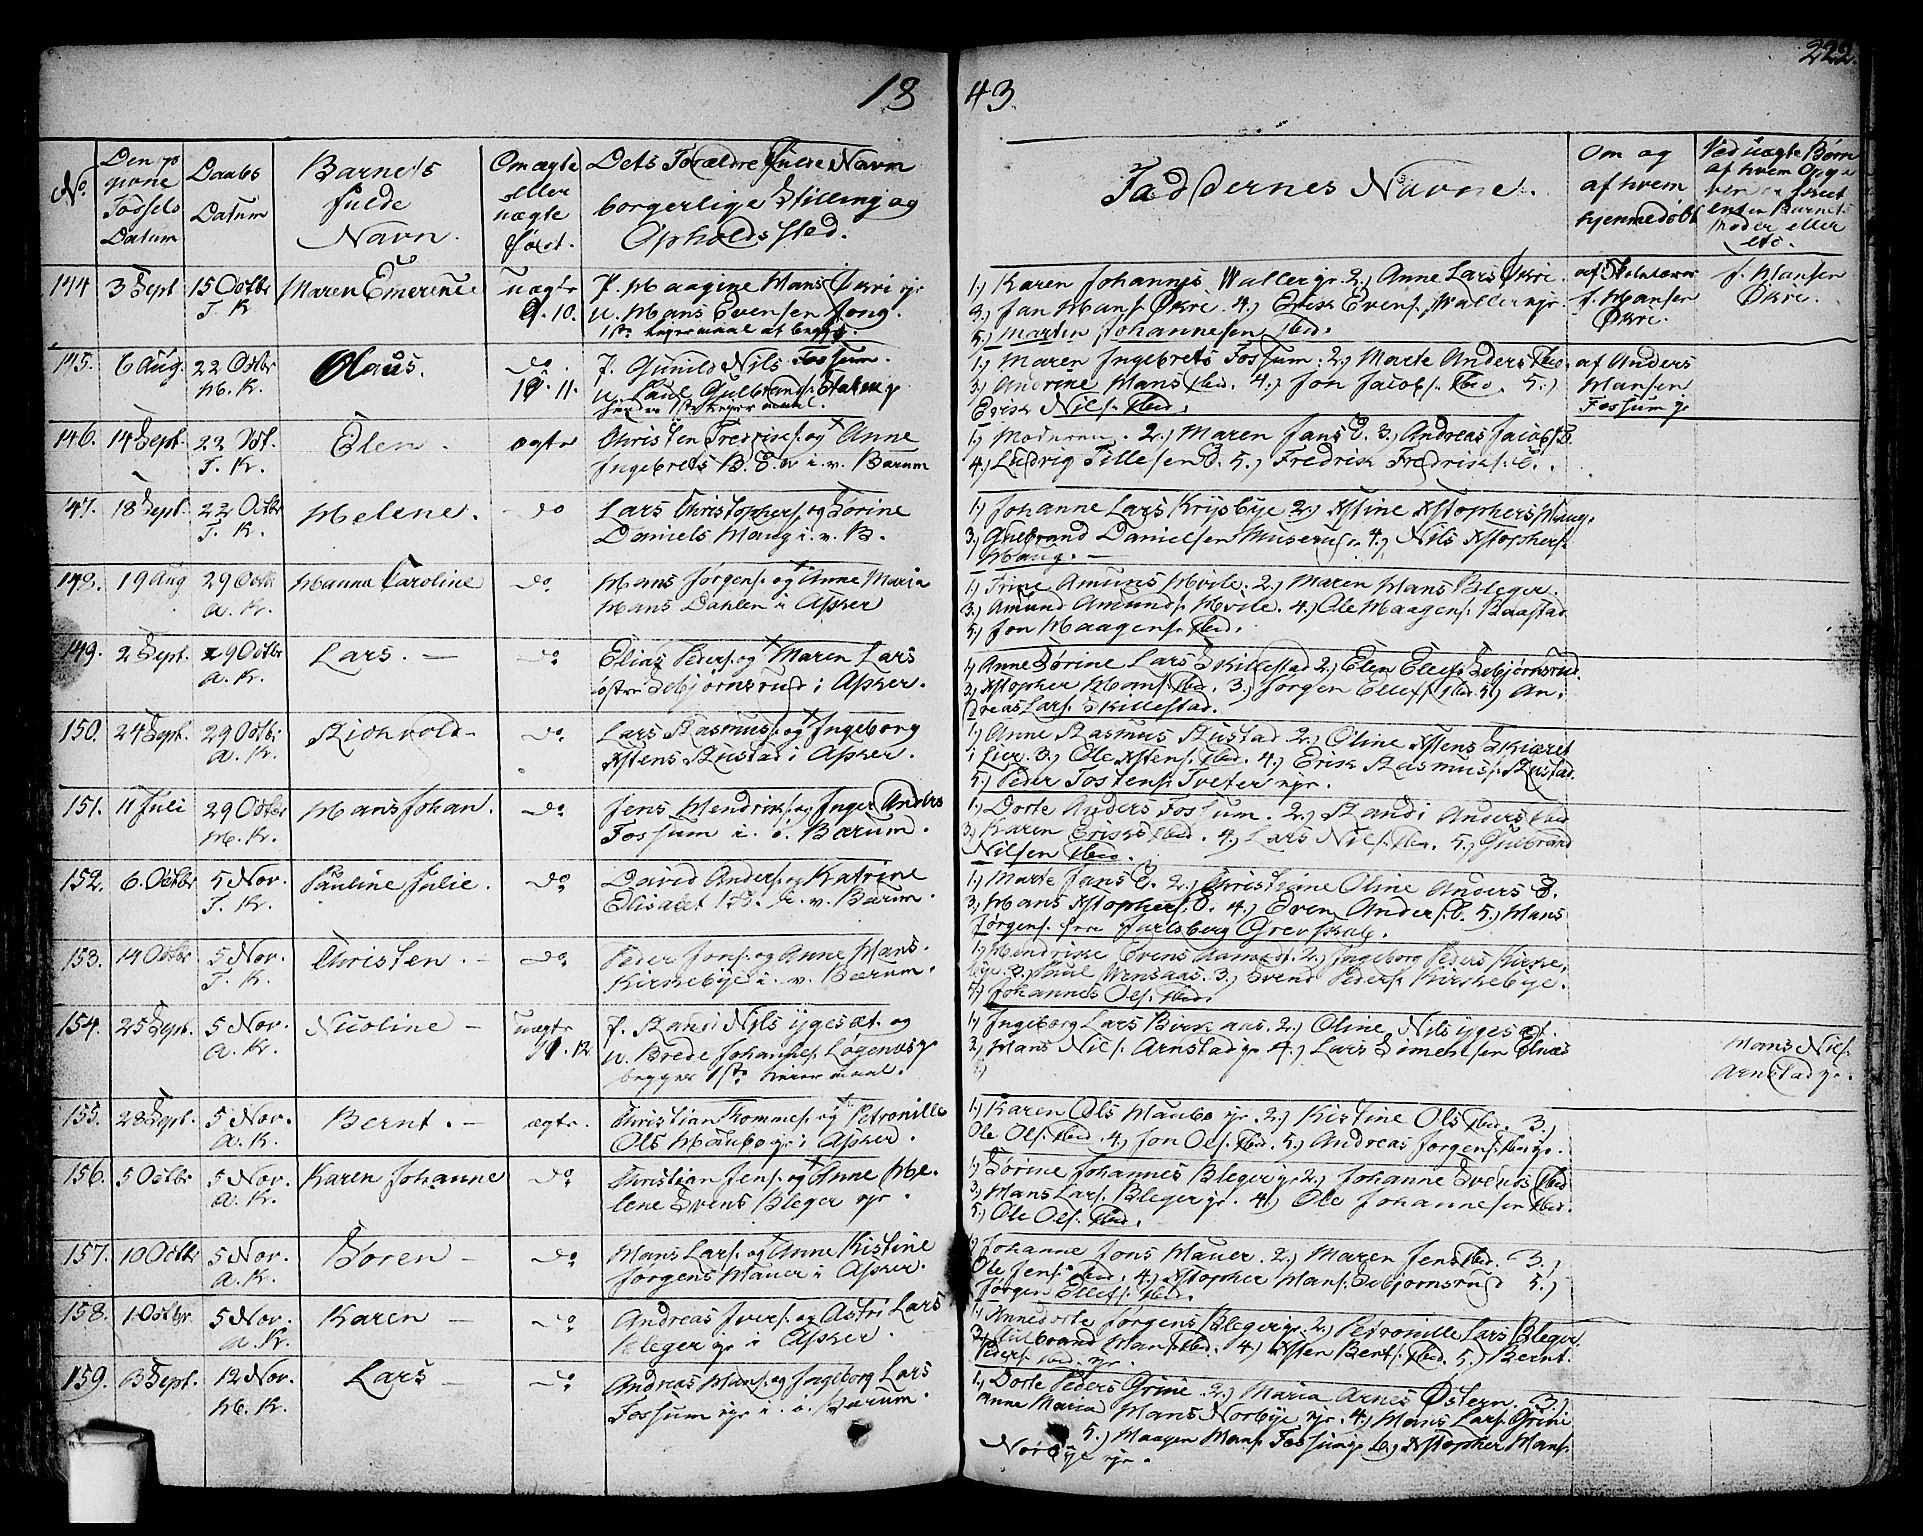 18 43. 222.
No. Den og givne Fødsels Datum Daabs Datum Barnets fulde Navn. Om ægte eller uægte født. Dets Forældre fulde Navn borgerlige Stilling og Opholdssted. Faddernes Navne. Om og af hvem hjemmedøbt Ved uægte Børn af hvem enten Barnets Moder eller etc.
144 3 Sept 15 Octbr T. K. Maren Emerence uægte 9. 10. P. Haagine Hans Økri
u. Hans Evensen Jong.
1ste Leiermaal af begge.
1.) Karen Johannes. Waller gr. 2.) Anne Lars Økri.
3.) Jan Hans. Økre. 4.) Erik Evens. Waller
5.) Martin Johannesen Ibid.
J. Hansen
Økri.
J. Hansen
Økri.
145. 6 Aug. 22 Octbr H. K. Olaus. do. 10. 11. P. Gunild Nils. Fossum.
u. Paul Gulbrands.
1ste Leiermaal.
1.) Maren Ingebrets Fossum. 2.) Marte Anders Ibid
3.) Andrine Hans Ibid. 4.) Jon Jacobs. Ibid. 5.)
Erik Nils. Ibid.
af Anders
Hansen
Fossum
146. 14 Sept. 22 Oct. T. K. Elen. ægte Christen Fredriks. og Anne
Ingebrets B. E. i. v. Bærum
1.) Moderen. 2.) Maren Jans 3.) Andreas Jacobs.
4.) Ludvig Tillesen 5.) Fredrik Fredriks.
147. 18 Sept. 22 Octbr T. K. Helene. do Lars Christophers. og Sørine
Daniels Haug i. v. B.
1.) Johanne Lars Krysbye 2.) Xstine Xstophers Haug.
3.) Gulbrand Danielsen Muserud. 4.) Nils Xstophers.
Haug. —
148. 19 Aug 29 Octb A. K. Hanna Caroline do Hans Jørgens. og Anne Maria
Hans Dahlen i Asker
1.) Trine Amunds Hvile. 2.) Maren Hans Bleger.
3.) Amund Amunds. Hvile. 4.) Ole Haagens. Baastad
5.) Jon Haagens. Ibid.
149. 2 Sept. 29 Octbr A. K. Lars. — do. Elias Peders. og Maren Lars
østre Sebjørnsrud i Asker.
1.) Anne Sørine Lars Skillestad 2.) Elen Ellefs Sebjørnsrud
3.) Xstopher Hans. Ibid. 3.) Jørgen Ellefs. Ibid. 5.) An-
dreas Lars. Skillestad.
150. 24 Sept. 29 Octbr A. K. Richvold— do. Lars Rasmus. og Ingeborg
Xstens Rustad i Asker.
1.) Anne Rasmus Rustad 2.) Oline Xstens Skiæret
i Lier. 3.) Ole Xstens. Ibid. 4.) Erik Rasmus. Rustad
5.) Peder Tostens. Tveter
151. 11 Juli 29 Octbr H. K. Hans Johan. do. Jens Hendriks. og Inger Anders
Fossum i. ø. Bærum.
1.) Dorte Anders Fossum. 2.) Randi Anders Ibid
3.) Karen Eriks Ibid. 4.) Lars Nils. Ibid. 5.) Gulbrand
Nilsen Ibid.
152. 6. Octbr 5 Nov. T. K. Pauline Julie. do. David Anders. og Katrine
Elisabet i. v. Bærum.
1.) Marte Jans 2.) Christiane Oline Anders
3.) Hans Xstophers. 4.) Even Anders. 5.) Hans
Jørgens. fra Jarlsberg Grevskab.
153. 14 Octbr 5 Nov. T. K. Christen. — do. Peder Jons. og Anne Hans.
Kirkebye i. v. Bærum.
1.) Hendrikke Evens 2.) Ingeborg Peders Kirke-
bye. 3.) Svend Peders. Kirkebye.
Johannes Ols. Ibid.
154. 25 Sept. 5 Nov. A. K. Nicoline — uægte 11. 12. P. Randi Nils ygeset. og
u. Brede Johannes. Løgenes
begges 1ste Leiermaal.
1.) Ingeborg Lars Birkaas. 2.) Oline Nils ygeset.
3.) Hans Nils. Arnstad 4.) Lars Simensen Elnæs
Hans Nils.
Arnstad
155. 28 Sept. 5 Nov. A. K. Bernt. — ægte. Christian Thommes. og Petronille
Ols Haubo i Asker.
1.) Karen Ols Haubo 2.) Kistine Ols Ibid. 3.)
Ole Ols. Ibid. 4.) Jon Ols. Ibid. 5.) Andreas Jørgens. Ibid.
156. 5 Octbr 5 Nov. A. K. Karen Johanne do. Christian Jens. og Anne He-
lene Svens Bleger
1.) Sørine Johannes Bleger 2.) Johanne Svends Ibid
3.) Hans Lars. Bleger 4.) Ole Johannesen Ibid.
5.) Ole Ols. Ibid.
157. 10 Octbr 5 Nov. A. K. Søren — do. Hans Lars. og Anne Kistine
Jørgens Hauer i Asker.
1.) Johanne Jons Hauer. 2.) Maren Jens Ibid. 3.)
Ole Jens. Ibid. 4.) Xstopher Hans. Sebjørnsrud 5.)
Jørgen Ellefs. Ibid.
158. 1 Octbr 5 Nov. A. K. Karen — do. Andreas Ivers. og Astri Lars
Bleger i Asker.
1.) Annedorte Jørgens Bleger 2.) Petronille Lars Bleger
3.) Gulbrand Hans. Ibid. 4.) Xsten Bents. Ibid. 5.) Bernt
Peders. Ibid.
159. 3 Sept. 12 Nov. H. K. Lars — do. Andreas Hans. og Ingeborg Lars
Fossum i. ø. Bærum.
1.) Dorte Peders Grini. 2.) Maria Arnes Østern. 3.)
Anne Maria Hans Norbye 4.) Hans Lars. Grini
5.) Haagen Hans. Fossum 6.) Xstopher Hans.
Norbye